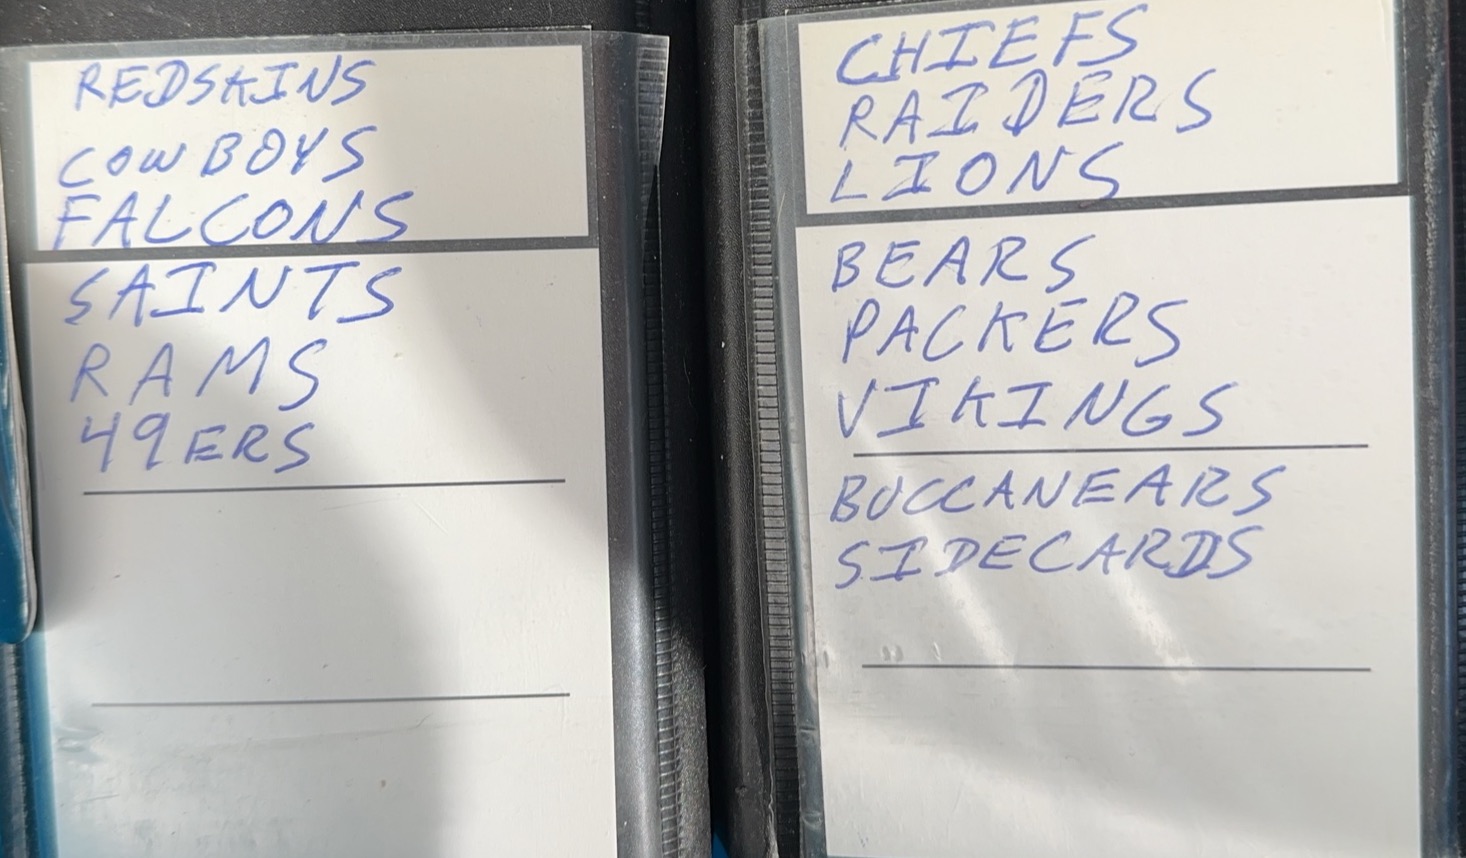 REDSKINS
COWBOYS
FALCONS
SAINTS
RAMS
49ERS
CHIEFS
RAIDERS
LIONS
BEARS
PACKERS
VIKINGS
BUCCANEARS
SIDECARDS